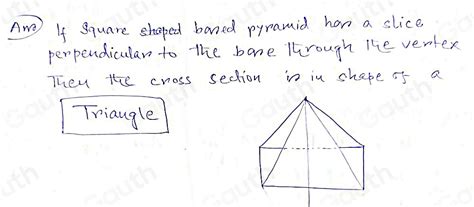 Ans If Square shaped based pyramid has a slice
perpendicular to the base through the vertex
Then the cross section is in shape of a
Triangle